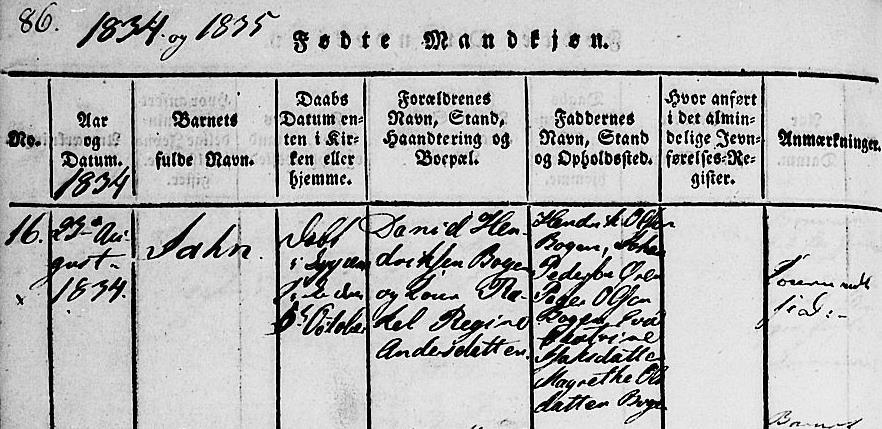 86. 1834. og 1835
Fødte Mandkjøn.
No.
Aar
og
Datum.
1834
Barnets
fulde Navn.
Daabs
Datum en-
ten i Kir-
ken eller
hjemme.
Forældrenes
Navn, Stand,
Haandtering og
Boepæl.
Faddernes
Navn, Stand
og Opholdssted.
Hvor anført
i det almin-
delige Jevn-
førelses-Re-
gister.
Anmærkninger.
16.
23de Au-
gust
1834.
Jahn
Døbt
i
October
Daniel Hen-
driksen Bogen
og Kone Ra-
kel Regine
Andersdatter.
Hendrik Olsen
Bogen,
Peder Olsen
Bogen
Maksdatter
Magrethe Ols
datter Bogen